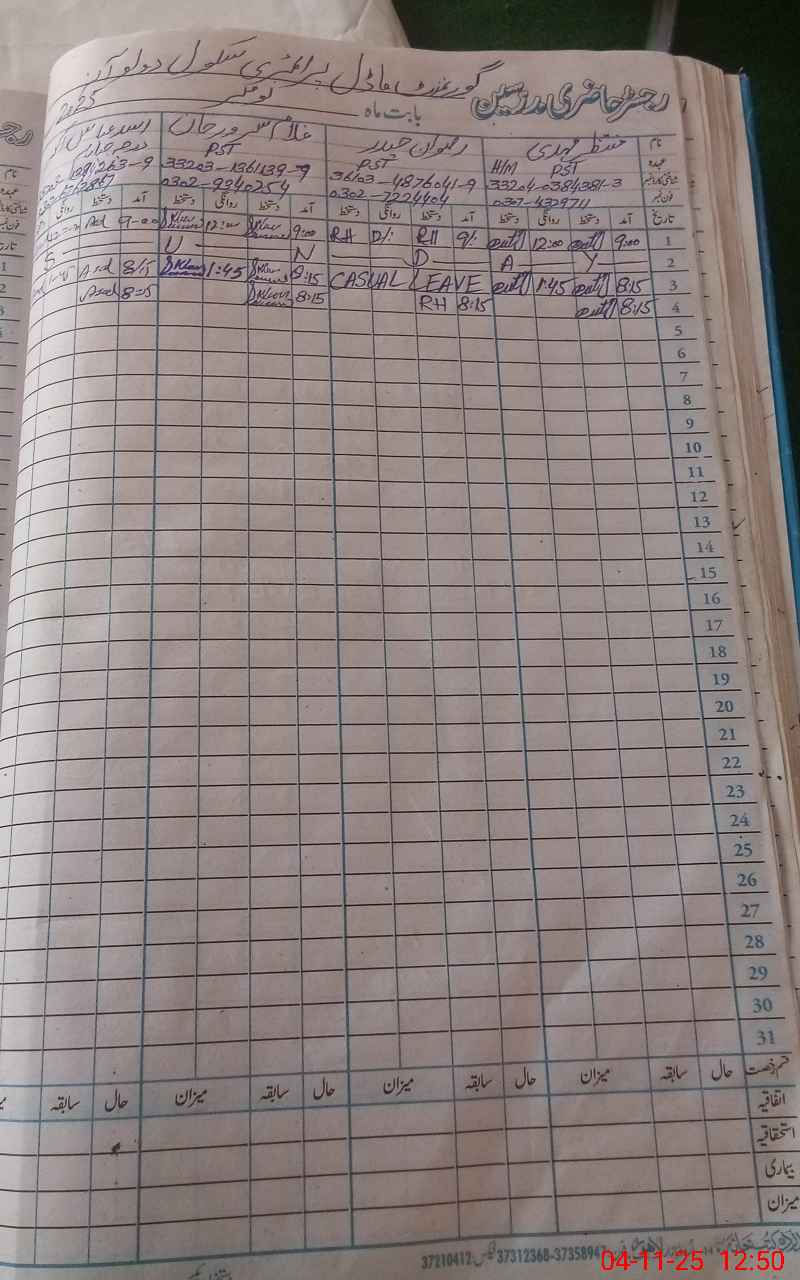 گورنمنٹ ماڈل پرائمری سکول دولو آن
رجسٹر حاضری مدرسین بابت ماہ نومبر 2025
نام منتظر مہدی رضوان حیدر غلام سرور خان
عہدہ H/M PST PST PST
33204-0384381-3 36103-4876041-9 33203-1361139-9
0302-7224404 0302-9240254
تاریخ آمد دستخط روانگی دستخط آمد دستخط روانگی دستخط آمد دستخط روانگی دستخط آمد دستخط
1 9:00 12:00 9/: RH RH 9:00 12:00 9-00 Asd
2 S U N D A Y
3 8:15 1:45 CASUAL LEAVE 8:15 1:45 8/15 Asd
4 8:15 8:15 RH 8:15 8=15 Asd
5
6
7
8
9
10
11
12
13
14
15
16
17
18
19
20
21
22
23
24
25
26
27
28
29
30
31
قسم رخصت حال سابقہ میزان حال سابقہ میزان حال سابقہ میزان حال سابقہ
اتفاقیہ
استحقاقیہ
بیماری
میزان
37210412 37312368-37358947
04-11-25 12:50